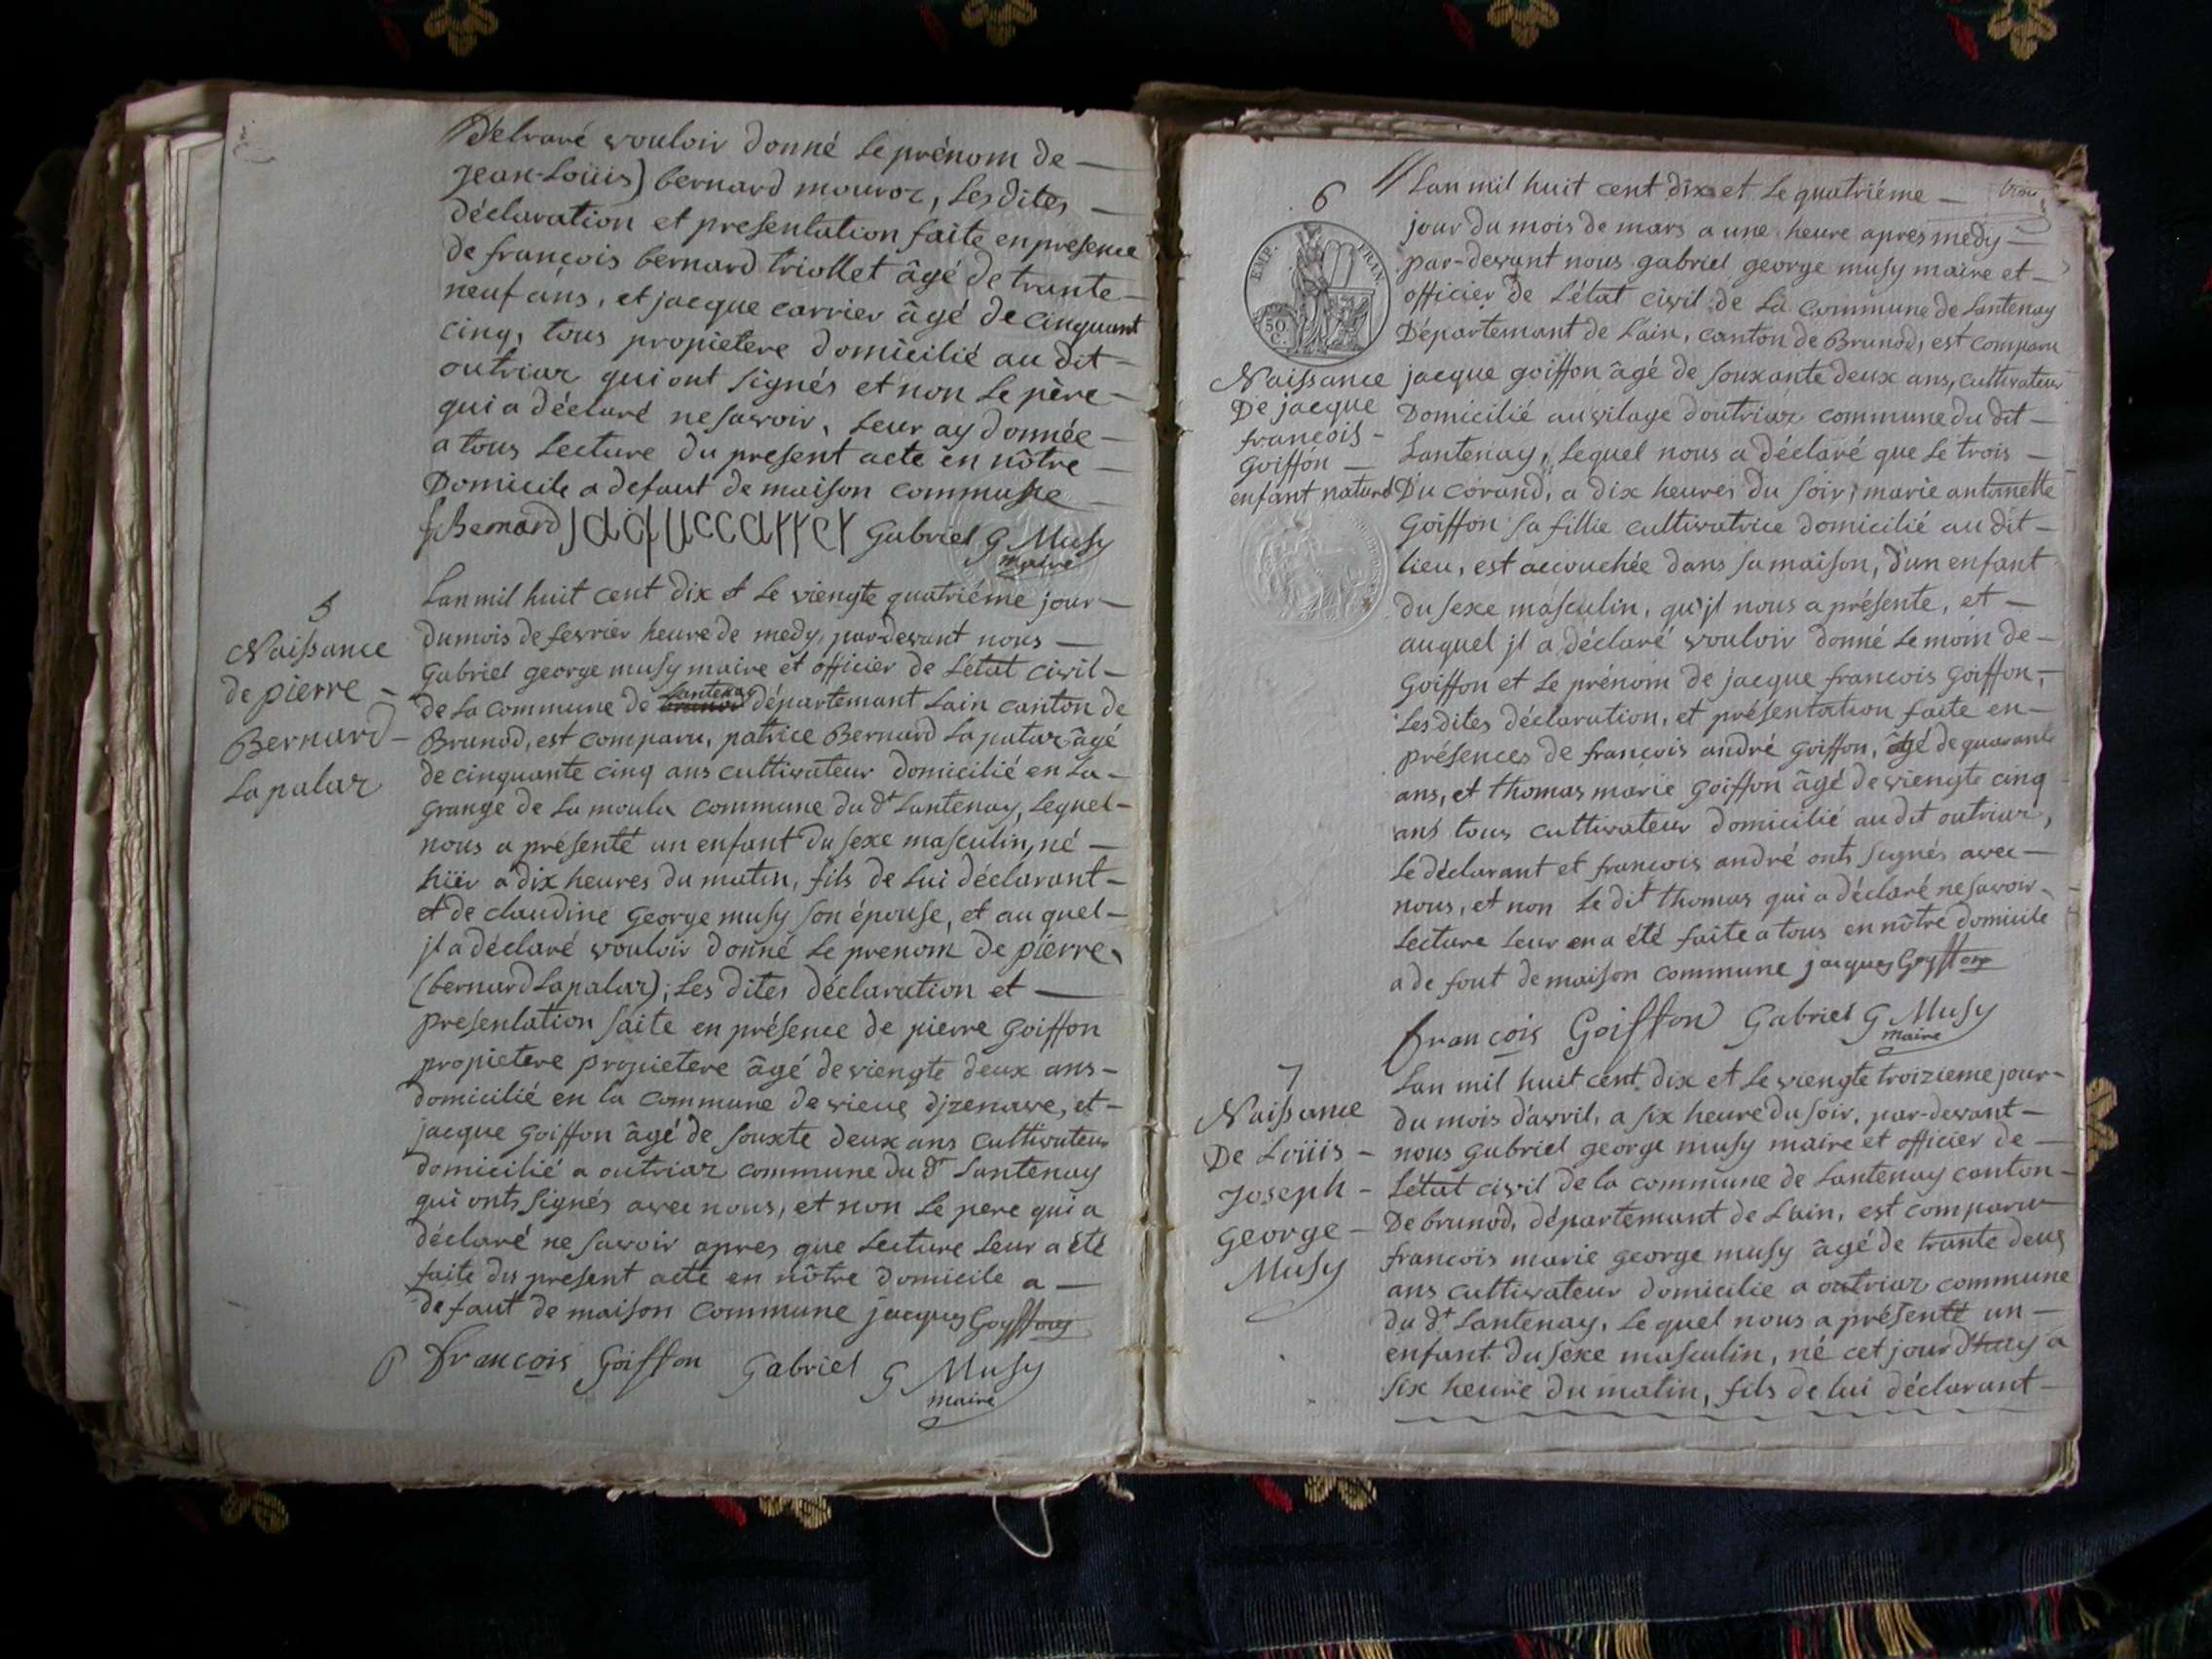 Délraré vouloir donné le prénom de —
jean-Loüis) bernard mouroz, Lesdites —
déclaration et presentation faite en presence
de françois bernard triollet âgé de trante —
neuf ans, et jacque carrier âgé de cinquant
cinq, tous propietere domicilié au dit —
outriaz qui ont signés et non le père —
qui a déclaré ne savoir, leur ay donnée —
a tous lecture du present acte en nôtre —
Domicile a defaut de maison commune —
f Bernard jaquccarrer Gabriel G Musy
maire
5
Naissance
de pierre —
Bernard —
Lapalaz
Lan mil huit cent dix et le viengte quatriéme jour —
du mois de fevrier heure de medy, par-devant nous —
Gabriel george musy maire et officier de L'état civil —
de la commune de Lantenay département Lain canton de
Brunod, est comparu, patrice Bernard Lapalaz âgé
de cinquante cinq ans cultivateur domicilié en La —
grange de La moula commune du dt Lantenay, Lequel —
nous a présenté un enfant du sexe masculin, né —
hiër a dix heures du matin, fils de Lui déclarant —
et de claudine George musy son épouse, et au quel —
jl a déclaré vouloir donné le prenom de pierre
(bernard Lapalaz); Les dites déclaration et —
presentation faite en présence de pierre Goiffon
propietere propietere âgé de viengte deux ans —
domicilié en la commune de vieue djzenave, et —
jacque Goiffon âgé de souxte deux ans cultivateur
domicilié a outriaz commune du dt Lantenay
qui onts signés avec nous, et non le pere qui a
déclaré ne savoir apres que lecture leur a été
faite du present acte en nôtre domicile a —
defaut de maison commune jacques Goyffong
P françois Goiffon Gabriel G Musy
maire
6
EMP. FRAN.
50 C.
Naissance
De jacque
françois —
Goiffon —
enfant naturel
Lan mil huit cent dix et Le quatriéme —
jour du mois de mars a une heure apres medy —
par-devant nous gabriel george musy maire et —
officier de L'état civil de La Commune de Lantenay
Départemant de L'ain, canton de Brunod, est comparu
jacque goiffon âgé de souxante deux ans, cultivateur
Domicilié au vilage d'outriaz commune du dit —
Lantenay, Lequel nous a déclaré que le trois —
Du Corand, a dix heures du soir, marie antoinette
Goiffon sa fillie cultivatrice domicilié au dit —
lieu, est accouchée dans sa maison, d'un enfant
du sexe masculin, qu'jl nous a présente, et —
auquel jl a déclaré vouloir donné le moin de —
Goiffon et Le prénom de jacque françois Goiffon, —
Les dites déclaration, et présentation faite en —
présences de françois andré Goiffon, âgé de quarante
ans, et thomas marie Goiffon âgé de viengte cinq
ans tous cultivateur domicilié au dit outriaz,
Le déclarant et françois andré onts signés avec —
nous, et non le dit thomas qui a déclaré ne savoir
lecture leur en a été faite a tous en nôtre domicile
a de fout de maison commune jacques Goyffong
françois Goiffon Gabriel G Musy
maire
7
Naissance
De Loüis —
Joseph —
George —
Musy
Lan mil huit cent dix et le viengte troizieme jour —
du mois d'avril, a six heure du soir, par-devant —
nous gabriel george musy maire et officier de —
L'état civil de la commune de Lantenay canton —
De brunod, départemant de L'ain, est comparu
françois marie george musy âgé de trante deux
ans cultivateur domicilie a outriaz commune
du dt Lantenay, Le quel nous a présenté un —
enfant du sexe masculin, né cet jour d'huy a
six heure du matin, fils de lui déclarant —